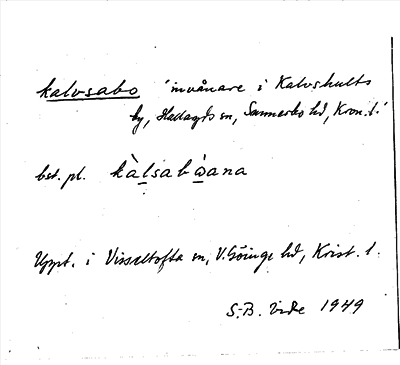 kalvsabo 'invånare i Kalvshults
by, Hallaryds sn, Sunnerbo hd, Kron. l.'
best. pl. kàlsabὼana
Uppt. i Visseltofta sn, V. Göinge hd, Krist. l.
S.-B. Vide 1949